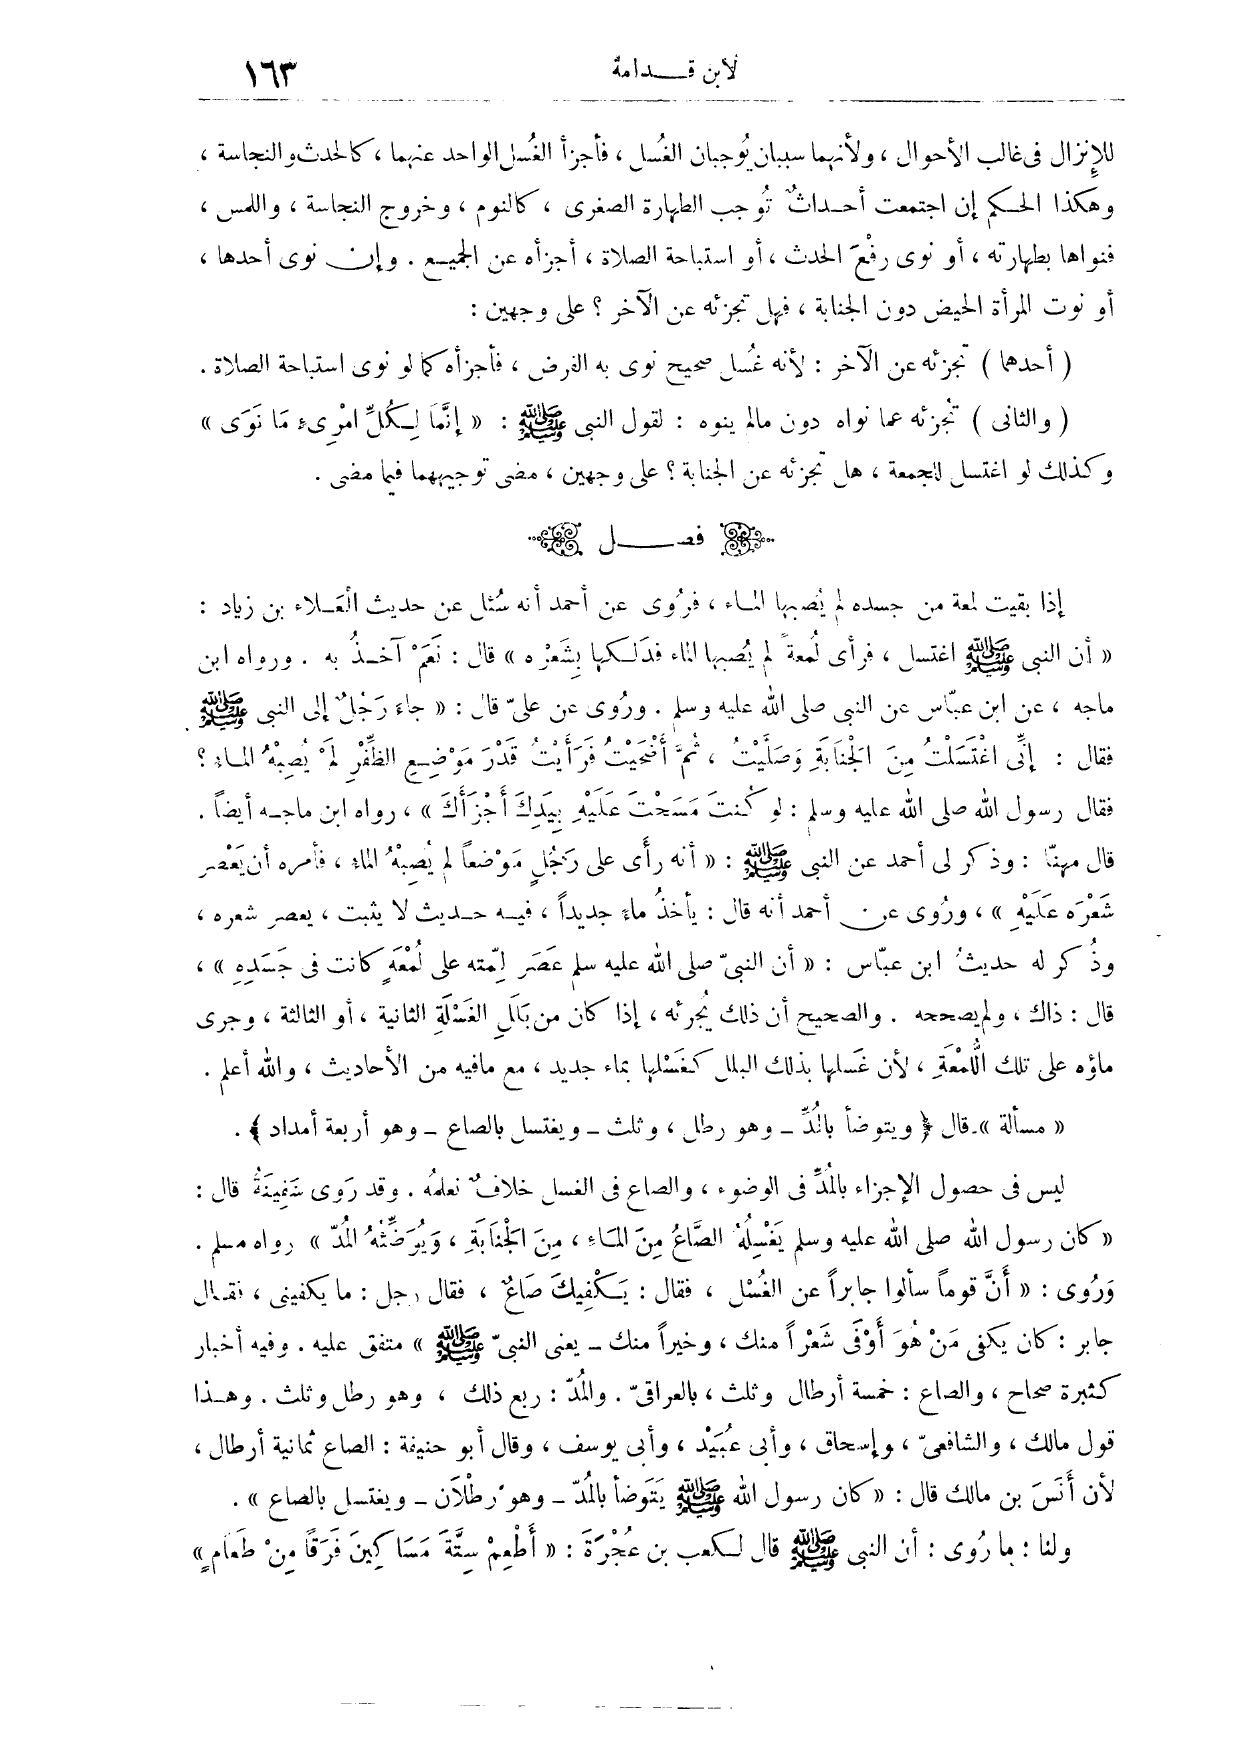 لابن قدامة ١٦٣
للإنزال فى غالب الأحوال ، ولأنهما سببان يُوجبان الغُسل ، فأجزأ الغُسل الواحد عنهما ، كالحدث والنجاسة ،
وهكذا الحكم إن اجتمعت أحداثٌ تُوجب الطهارة الصغرى ، كالنوم ، وخروج النجاسة ، واللمس ،
فنواها بطهارته ، أو نوى رفْعَ الحدث ، أو استباحة الصلاة ، أجزأه عن الجميع . وإن نوى أحدها ،
أو نوت المرأة الحيض دون الجنابة ، فهل تجزئه عن الآخر ؟ على وجهين :
( أحدها ) تجزئه عن الآخر : لأنه غُسل صحيح نوى به الفرض ، فأجزأه كما لو نوى استباحة الصلاة .
( والثانى ) تجزئه عما نواه دون مالم ينوه : لقول النبى ﷺ : « إنَّمَا لِكُلِّ امْرِىءٍ مَا نَوَى »
وكذلك لو اغتسل للجمعة ، هل تجزئه عن الجنابة ؟ على وجهين ، مضى توجيههما فيما مضى .
فصل
إذا بقيت لمعة من جسده لم يُصبها الماء ، فرُوى عن أحمد أنه سُئل عن حديث العَلاء بن زياد :
« أن النبى ﷺ اغتسل ، فرأى لُمعةً لم يُصبها الماء فدَلكها بِشَعْره » قال : نَعَمْ آخذُ به . ورواه ابن
ماجه ، عن ابن عبّاس عن النبى صلى الله عليه وسلم . ورُوى عن علىّ قال : « جاءَ رَجُلٌ إلى النبى ﷺ
فقال : إنِّى اغْتَسَلْتُ مِنَ الْجَنَابَةِ وَصَلَّيْتُ ، ثُمَّ أَضْحَيْتُ فَرَأَيْتُ قَدْرَ مَوْضِعِ الظِّفْرِ لَمْ يُصِبْهُ الماء ؟
فقال رسول الله صلى الله عليه وسلم : لو كُنتَ مَسَحْتَ عَلَيْهِ بِيَدِكَ أَجْزَأَكَ » ، رواه ابن ماجه أيضاً .
قال مهنّا : وذكر لى أحمد عن النبى ﷺ : « أنه رأى على رَجُلٍ مَوْضعاً لم يُصِبْهُ الماء ، فأمره أن يَعْصر
شَعْرَه عَلَيْهِ » ، ورُوى عن أحمد أنه قال : يأخذُ ماءً جديداً ، فيه حديث لا يثبت ، يعصر شعره ،
وذُكر له حديثُ ابن عبّاس : « أن النبىّ صلى الله عليه سلم عَصَر لِمّته على لُمْعَةٍ كانت فى جَسَدِهِ » ،
قال : ذاك ، ولم يصححه . والصحيح أن ذلك يُجزئه ، إذا كان من بَلَلِ الغَسْلَةِ الثانية ، أو الثالثة ، وجرى
ماؤه على تلك اللُّمْعَةِ ، لأن غَسلها بذلك البلل كغَسْلها بماء جديد ، مع مافيه من الأحاديث ، والله أعلم .
« مسألة » قال ﴿ ويتوضأ بالمُدِّ – وهو رطل ، وثلث – ويغتسل بالصاع – وهو أربعة أمداد ﴾ .
ليس فى حصول الإجزاء بالمُدِّ فى الوضوء ، والصاع فى الغسل خلافٌ نعلمه . وقد رَوى سَفِينَةُ قال :
« كان رسول الله صلى الله عليه وسلم يَغْسِلُهُ الصَّاعُ مِنَ المَاءِ ، مِنَ الْجَنَابَةِ ، وَيُوَضِّئُهُ المُدّ » رواه مسلم .
وَرُوى : « أَنَّ قوماً سألوا جابراً عن الغُسْل ، فقال : يَكْفِيكَ صَاعٌ ، فقال رجل : ما يكفينى ، فقال
جابر : كان يكفى مَنْ هُوَ أَوْفَى شَعْراً منك ، وخيراً منك – يعنى النبىّ ﷺ » متفق عليه . وفيه أخبار
كثيرة صحاح ، والصاع : خمسة أرطال وثلث ، بالعراقىّ . والمُدّ : ربع ذلك ، وهو رطل وثلث . وهذا
قول مالك ، والشافعىّ ، وإسحاق ، وأبى عُبَيْد ، وأبى يوسف ، وقال أبو حنيفة : الصاع ثمانية أرطال ،
لأن أَنَسَ بن مالك قال : « كان رسول الله ﷺ يَتَوضأ بالمُدّ – وهو رطْلَان – ويغتسل بالصاع » .
ولنا : ما رُوى : أن النبى ﷺ قال لكعب بن عُجْرَةَ : « أَطْعِمْ سِتَّةَ مَسَاكِينَ فَرَقًا مِنْ طَعَامٍ »